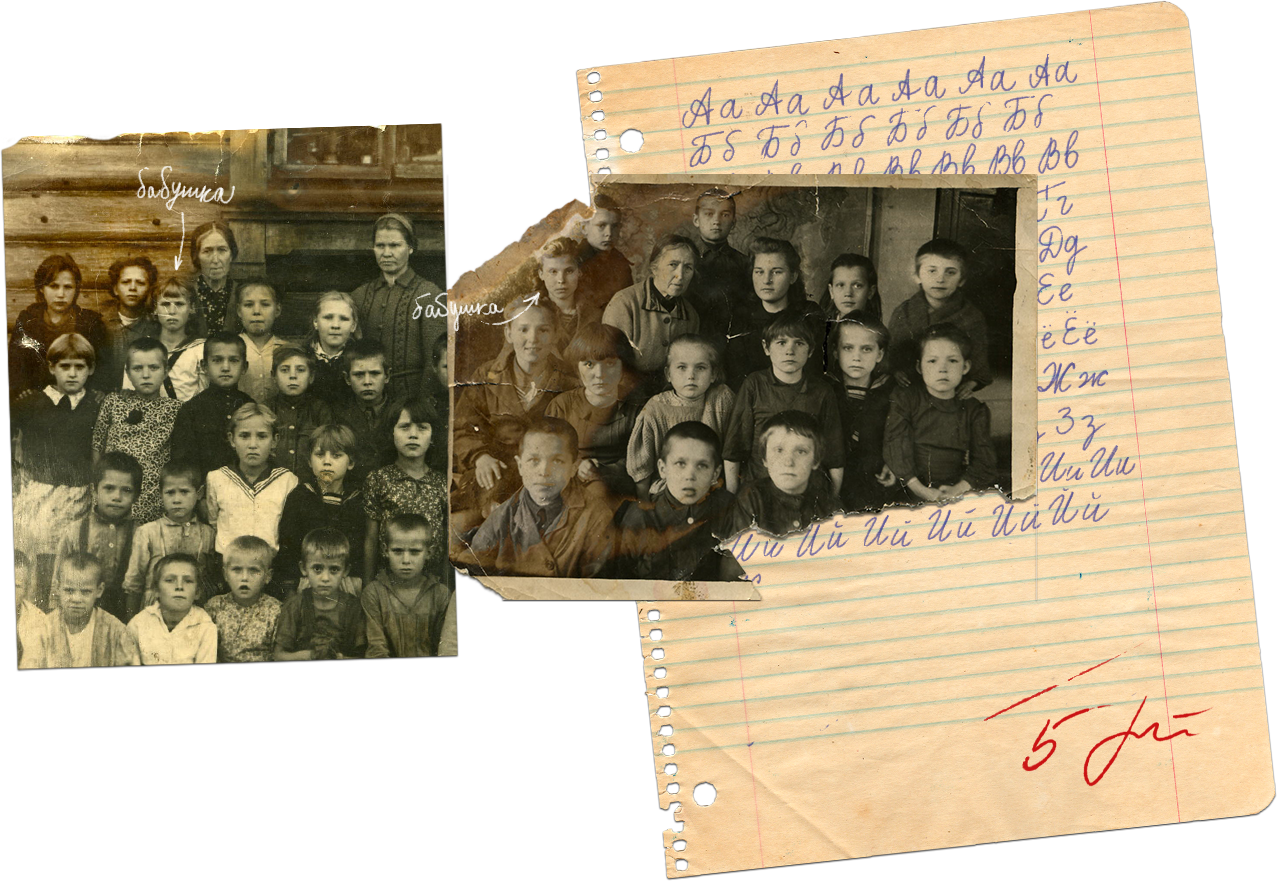 бабушка
бабушка
Аа Аа Аа Аа Аа Аа
Бб Бб Бб Бб Бб Бб
Вв Вв Вв Вв
г
Дд
Ее
ё Ёё
Жж
Зз
Ии Ии
Йй Йй Йй Йй Йй
5